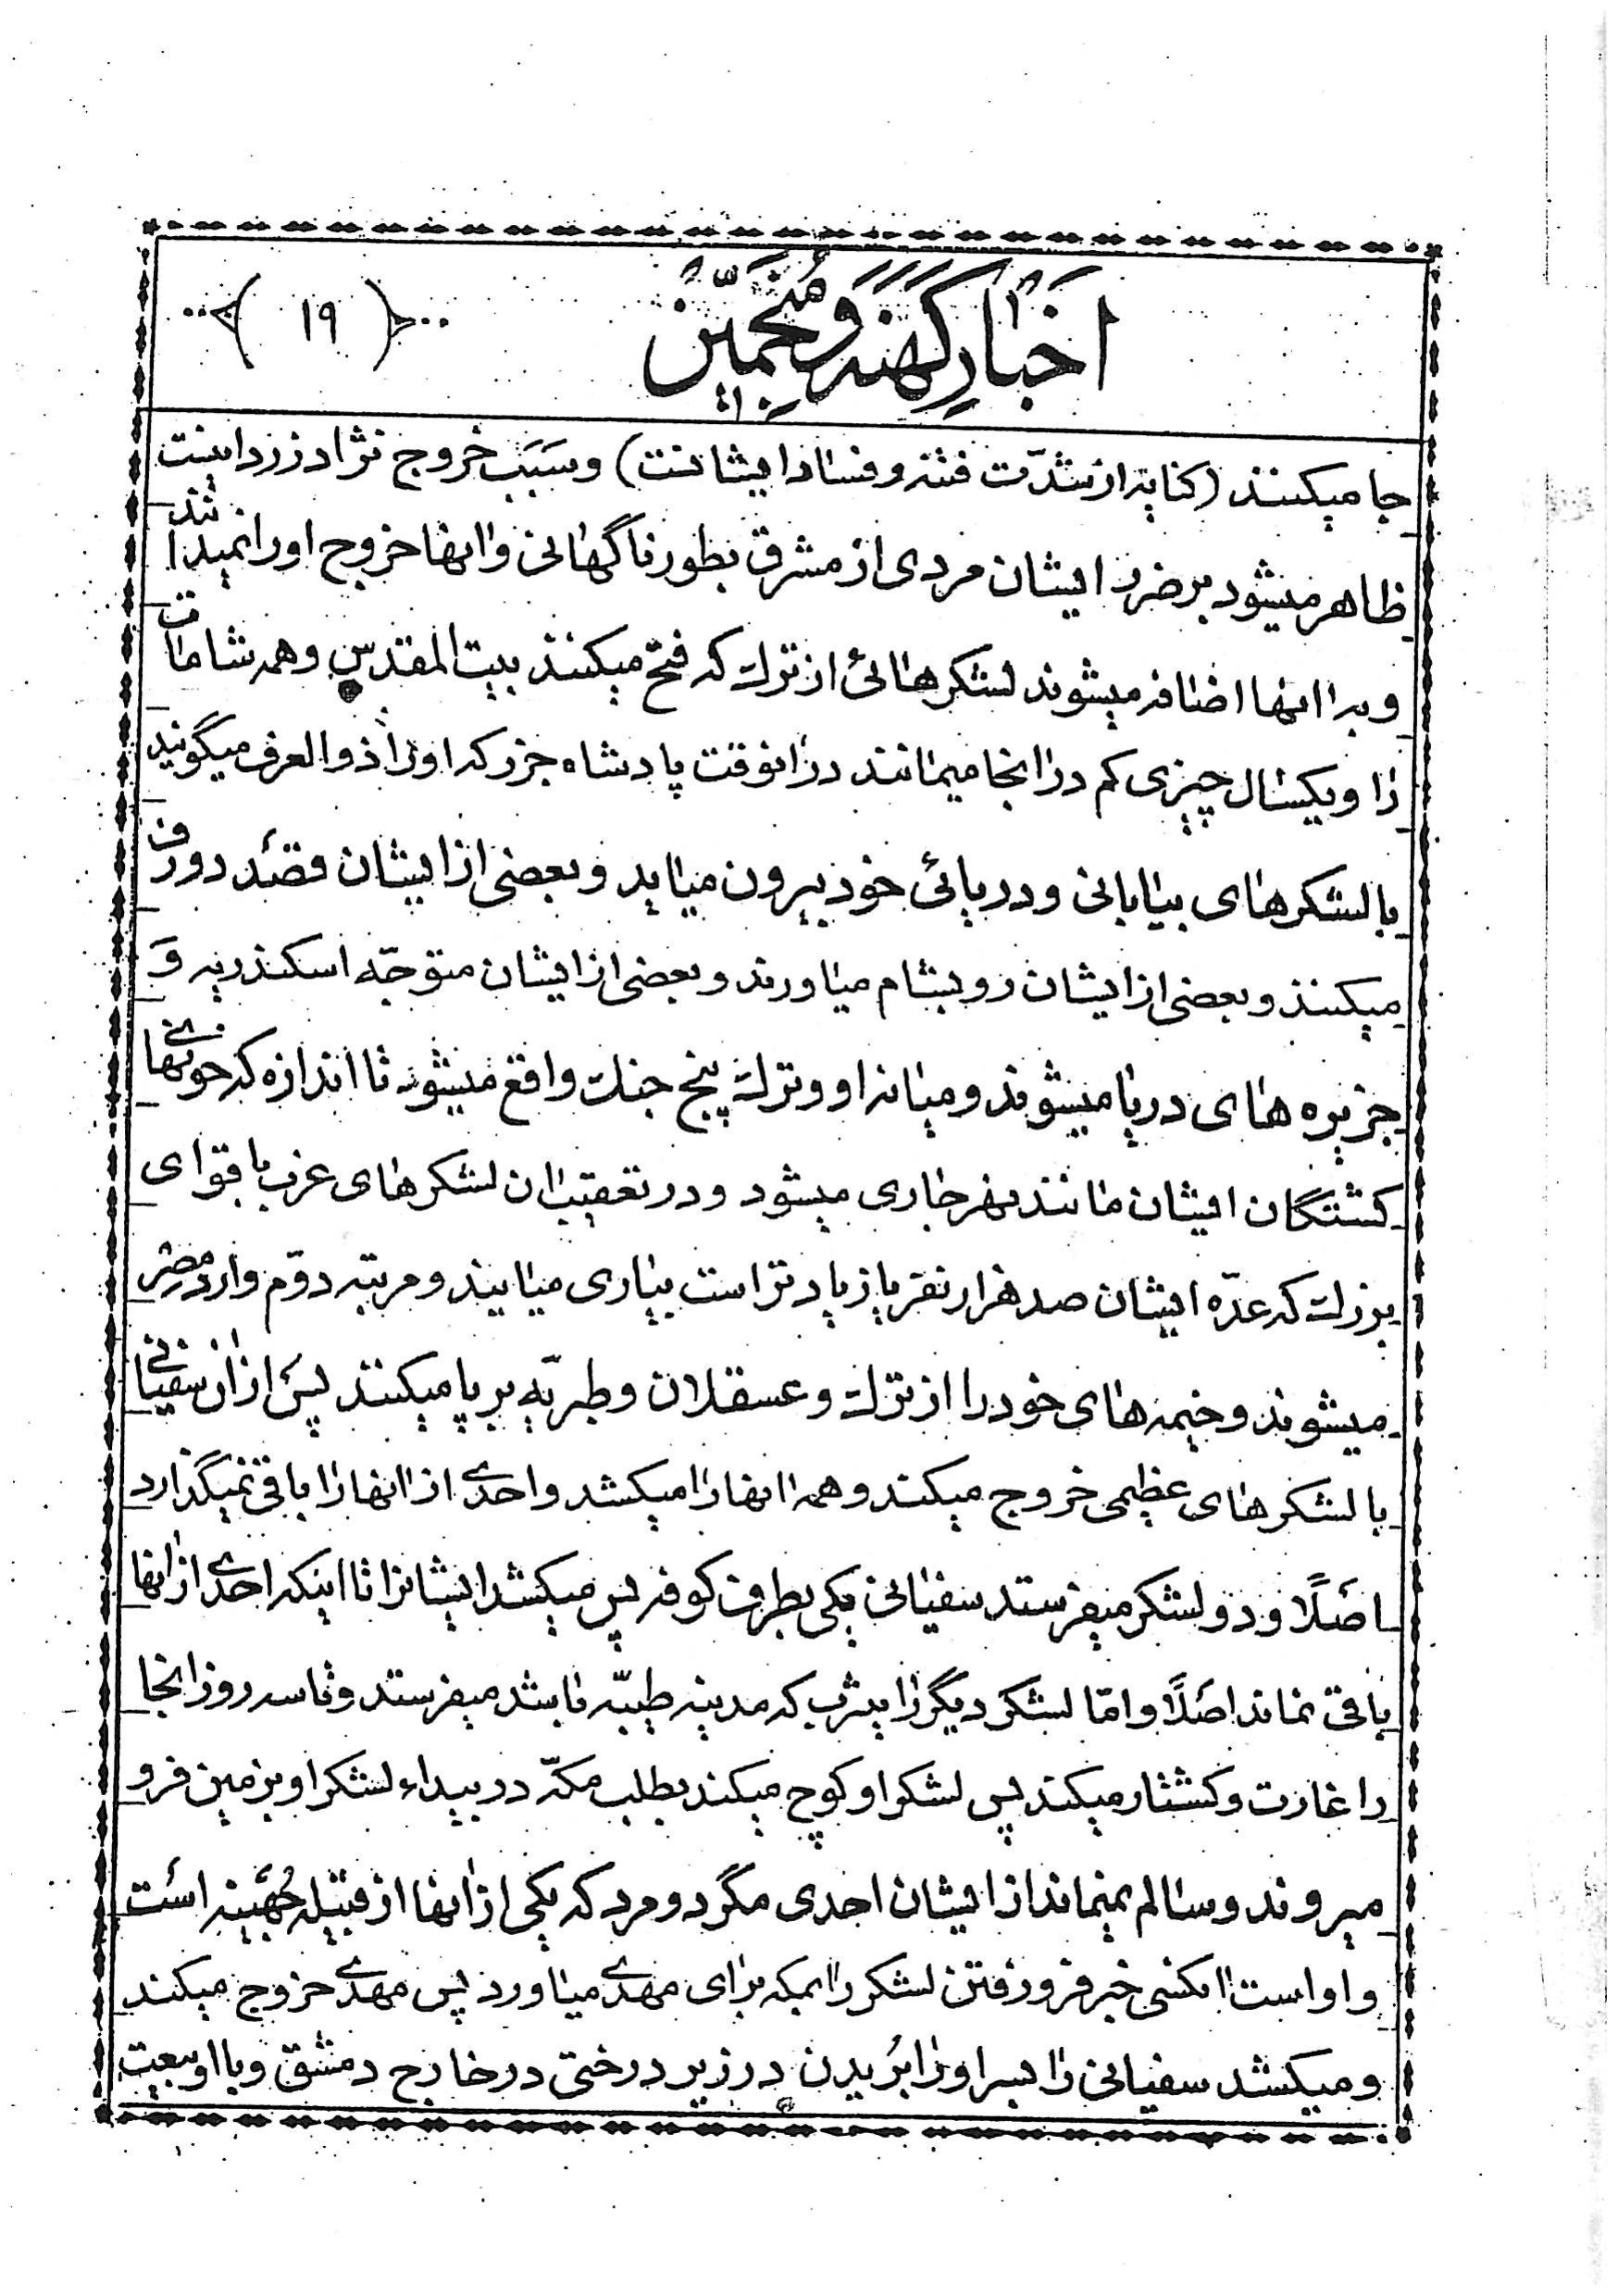 اخبار کهنه و منجمین
( ۱۹ )
جا میکنند (کنایه از شدّت فتنه و فساد ایشانست) و سبب خروج نژاد زرد اینست
ظاهر میشود بر ضرر ایشان مردی از مشرق بطور ناگهانی و آنها خروج او را نمیدانند
و به آنها اضافه میشوند لشکرهائی از ترک که فتح میکنند بیت المقدس و همه شامات
را و یکسال چیزی کم در آنجا میمانند در آنوقت پادشاه جزر که او را ذوالعرف میگویند
با لشکرهای بیابانی و دریائی خود بیرون میآید و بعضی از ایشان قصد دورف
میکنند و بعضی از ایشان رو بشام میاورند و بعضی از ایشان متوجّه اسکندریه و
جزیره های دریا میشوند و میانه او و ترک پنج جنک واقع میشود تا اندازه که خونهای
کشتگان ایشان مانند نهر جاری میشود و در تعقیب آن لشکرهای عرب با قوای
بزرک که عدّه ایشان صد هزار نفر یا زیادتر است بیاری میایند و مرتبه دوّم وارد مصر
میشوند و خیمه های خود را از ترک و عسقلان و طبریّه بر پا میکنند پس از آن سفیانی
با لشکرهای عظیمی خروج میکند و همه آنها را میکشد و احدی از آنها را باقی نمیگذارد
اصلاً و دو لشکر میفرستد سفیانی یکی بطرف کوفه پس میکشد ایشانرا تا اینکه احدی از آنها
باقی نماند اصلاً و امّا لشکر دیگر را بیثرب که مدینه طیبّه باشد میفرستد و تا سه روز آنجا
را غارت و کشتار میکند پس لشکر او کوچ میکند بطلب مکّه در بیداء لشکر او بزمین فرو
میروند و سالم نمیماند از ایشان احدی مگر دو مرد که یکی از آنها از قبیله جُهَینه است
و او است آنکسی خبر فرو رفتن لشکر را بمکه برای مهدی میاورد پس مهدی خروج میکند
و میکشد سفیانی را بسر او را بُریدن در زیر درختی در خارج دمشق و با او بیعت